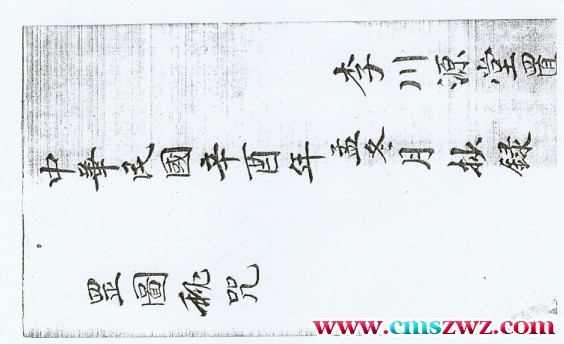 李川源堂置
中華民國辛酉年孟冬月抄錄
罡圖秘咒
www.cmszwz.com